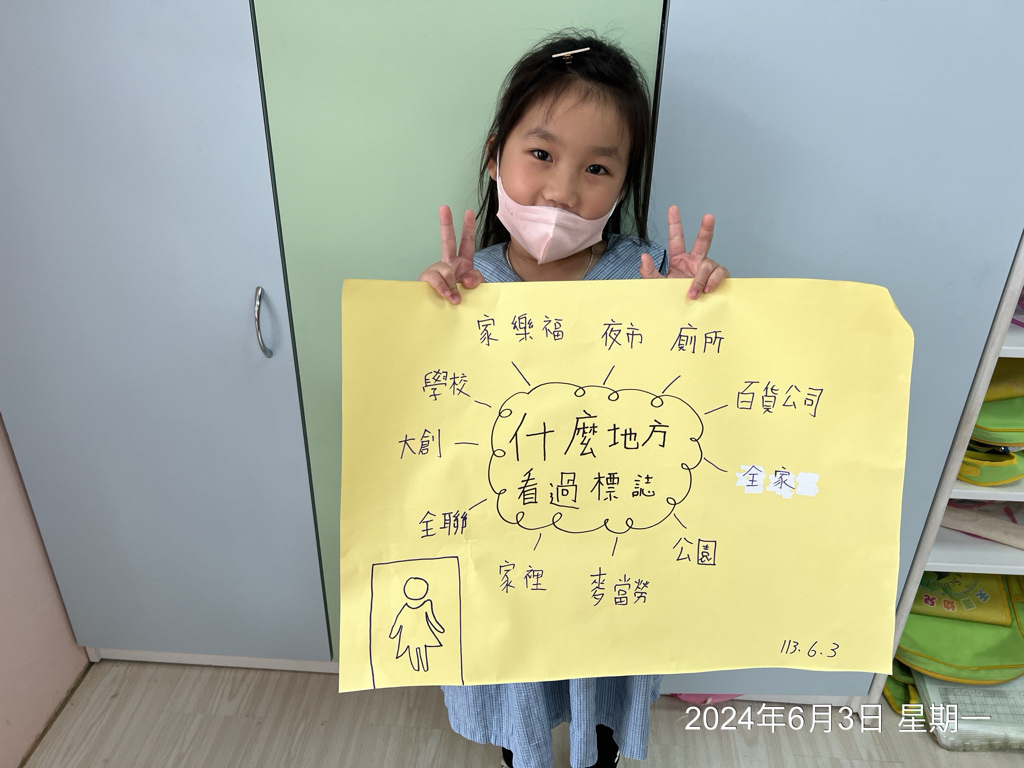 家樂福 夜市 廁所
學校 百貨公司
什麼地方
大創
看過標誌 全家
全聯
公園
家裡 麥當勞
113.6.3
2024年6月3日 星期一